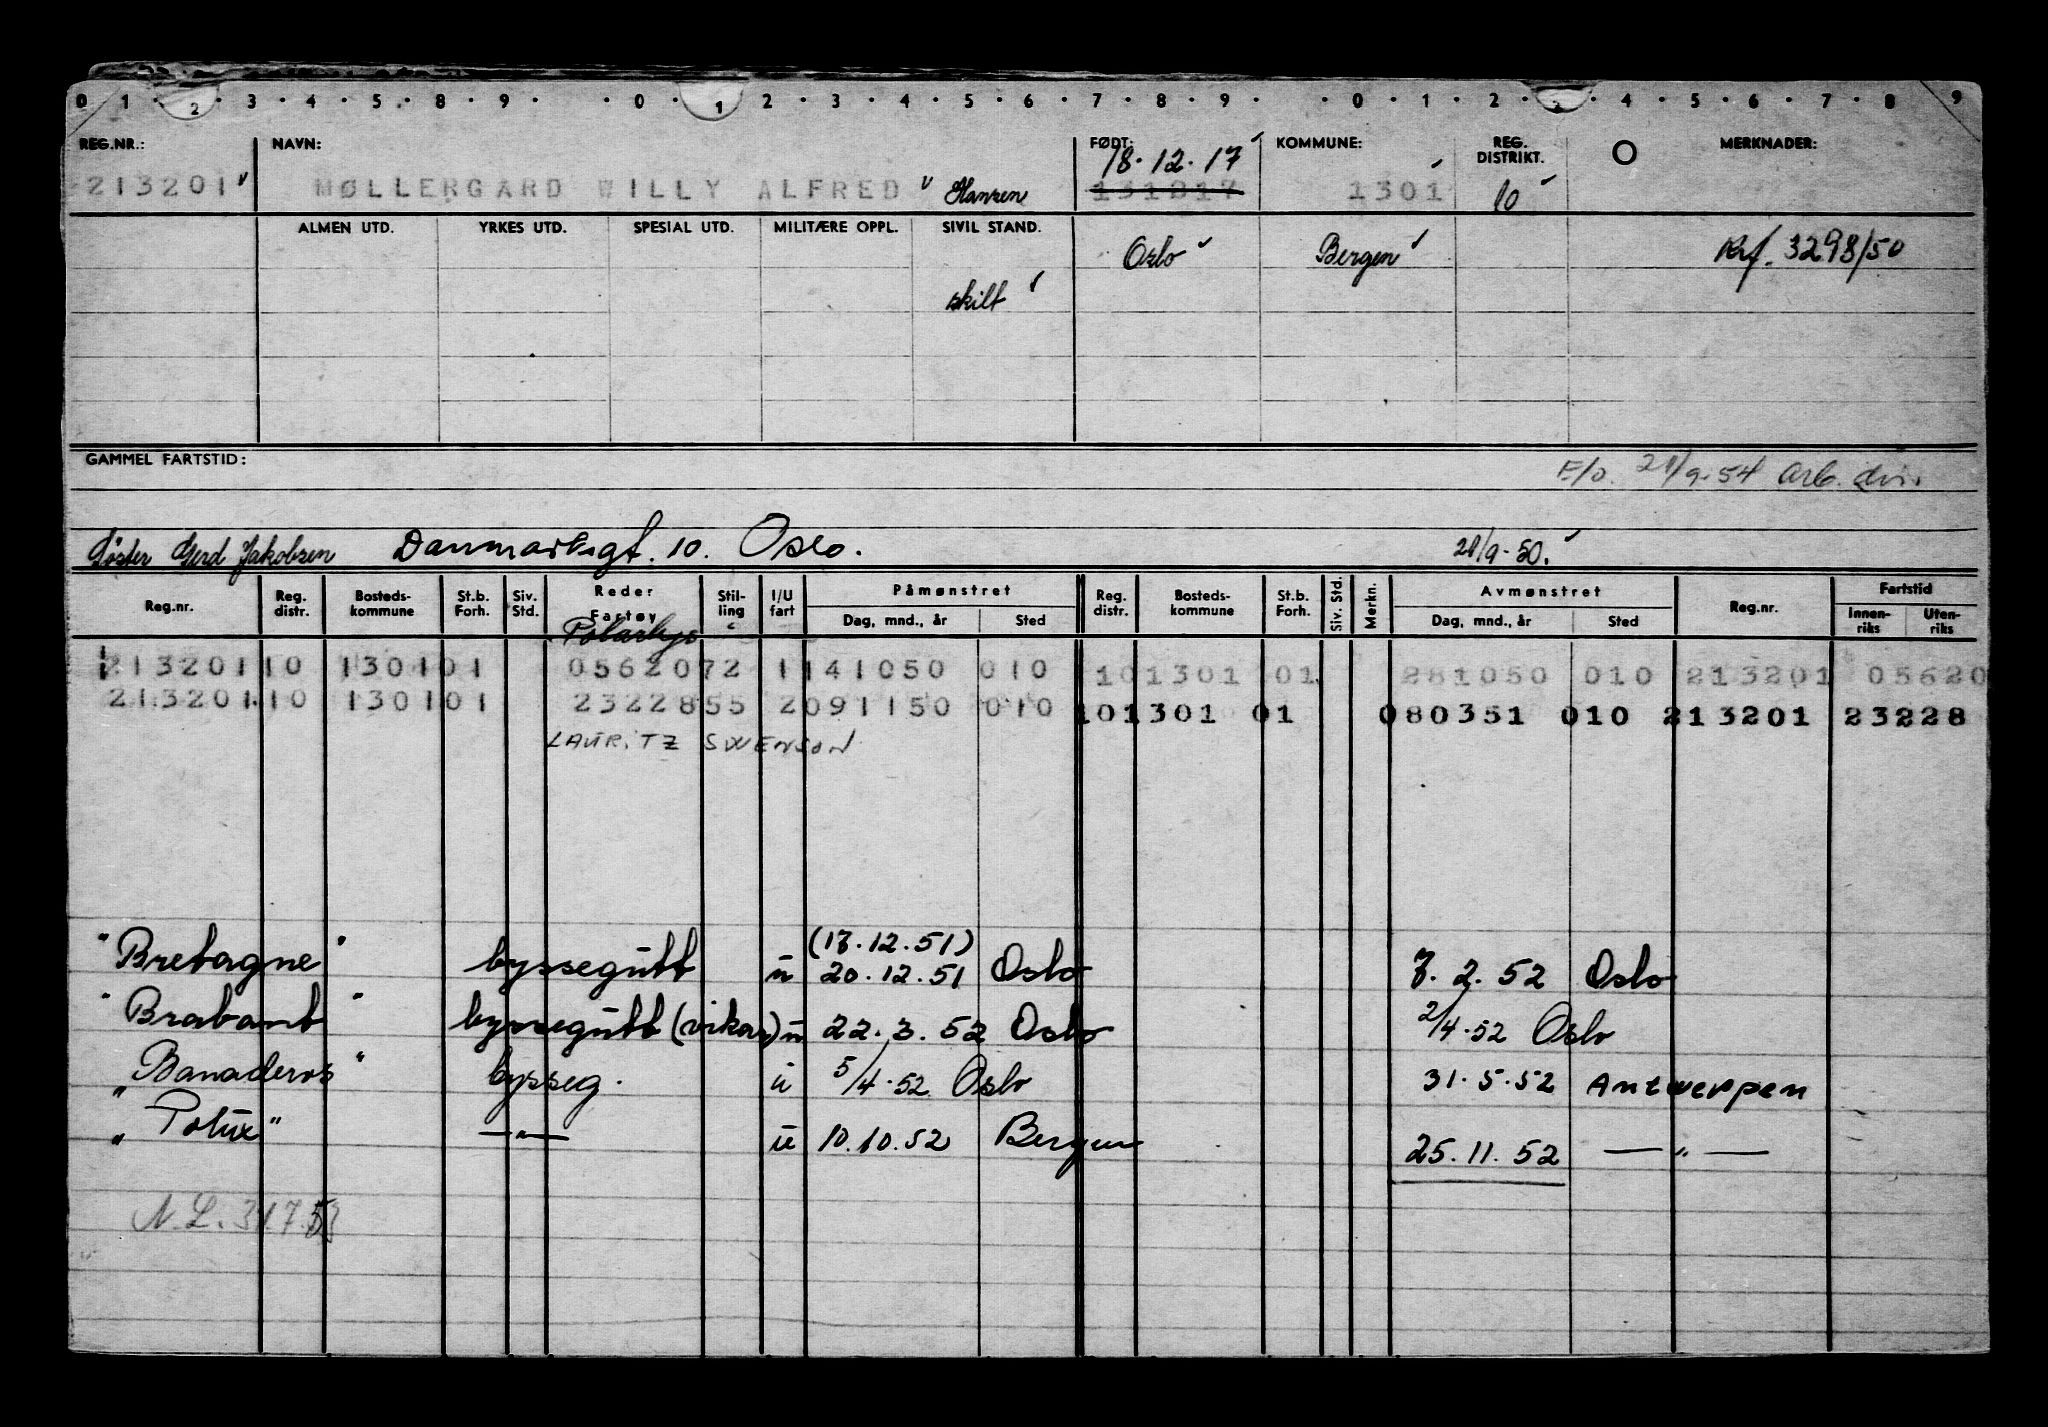 0 1 · 2 · 3 · 4 · 5 · 8 · 9 · · 0 · 1 · 2 · 3 · 4 · 5 · 6 · 7 · 8 · 9 · · 0 · 1 · 2 · 3 · 4 · 5 · 6 · 7 · 8 9
REG.NR.: NAVN: FØDT: KOMMUNE: REG. DISTRIKT. O MERKNADER:
18.12.17
213201 MØLLERGARD WILLY ALFRED Hansen 131217 1301 10
ALMEN UTD. YRKES UTD. SPESIAL UTD. MILITÆRE OPPL. SIVIL STAND. Oslo Bergen Krf. 3298/50
skilt
GAMMEL FARTSTID: F/o. 21/9-54 Arb. dir.
Søster Gerd Jakobsen Danmarksgt. 10. Oslo. 21/9-50.
Reg.nr. Reg. distr. Bosteds-kommune St.b. Forh. Siv. Std. Reder Fartøy Stil-ling I/U fart Påmønstret Dag, mnd., år Sted Reg. distr. Bosteds-kommune St.b. Forh. Siv. Std. Merkn. Avmønstret Dag, mnd., år Sted Reg.nr. Fartstid Innen-riks Uten-riks
Polarlys
213201 10 1301 01 05620 72 1 141050 010 10 1301 01 281050 010 213201 05620
213201 10 1301 01 23228 55 2 091150 010 10 1301 01 080351 010 213201 23228
LAURITZ SWENSON
(17.12.51)
"Bretagne" byssegutt u 20.12.51 Oslo 7.2.52 Oslo
"Brabant" byssegutt (vikar) u 22.3.52 Oslo 2/4.52 Oslo
"Banaderos" bysseg. u 5/4.52 Oslo 31.5.52 Antwerppen
"Polux" —"— u 10.10.52 Bergen 25.11.52 —"—
N.L. 317.53